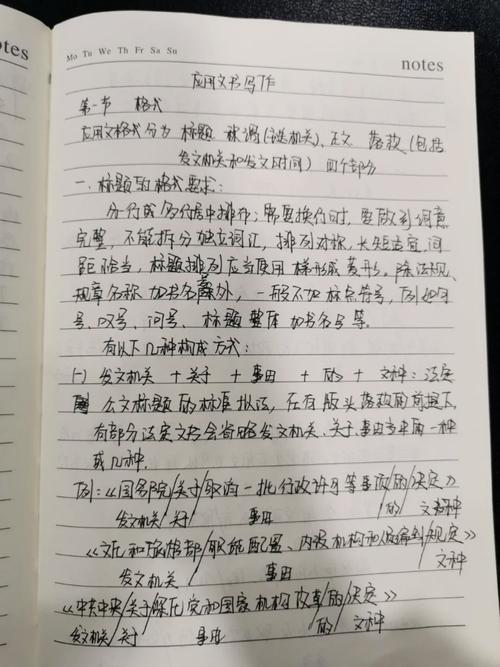 otes
Mo Tu We Th Fr Sa Su
notes
应用文书写作
第一节 格式
应用文格式分为 标题 称谓(送机关)、正文 落款(包括
发文机关和发文时间) 四个部分
一、标题的格式要求:
分一行或多行居中排布;需要换行时,要做到词意
完整,不能拆分独立词汇,排列对称,长短适宜,间
距恰当,标题排列应当使用梯形或菱形。除法规、
规章名称加书名号外,一般不加标点符号,例如问
号、叹号、问号、标题整体加书名号等。
有以下几种构成方式:
(一) 发文机关 + 关于 + 事由 + 的 + 文种:法定
公文标题的标准拟法,在有版头落款的前提下,
有部分法定文书会省略发文机关、关于、事由当中第一种
或几种。
例:《国务院/关于/取消一批行政许可等事项/的/决定》
发文机关 关于 事由 的 文种
《文化和旅游部/职能配置、内设机构和人员编制/规定》
发文机关 事由 文种
《中共中央/关于/深化党和国家机构改革/的/决定》
发文机关 关于 事由 的 文种